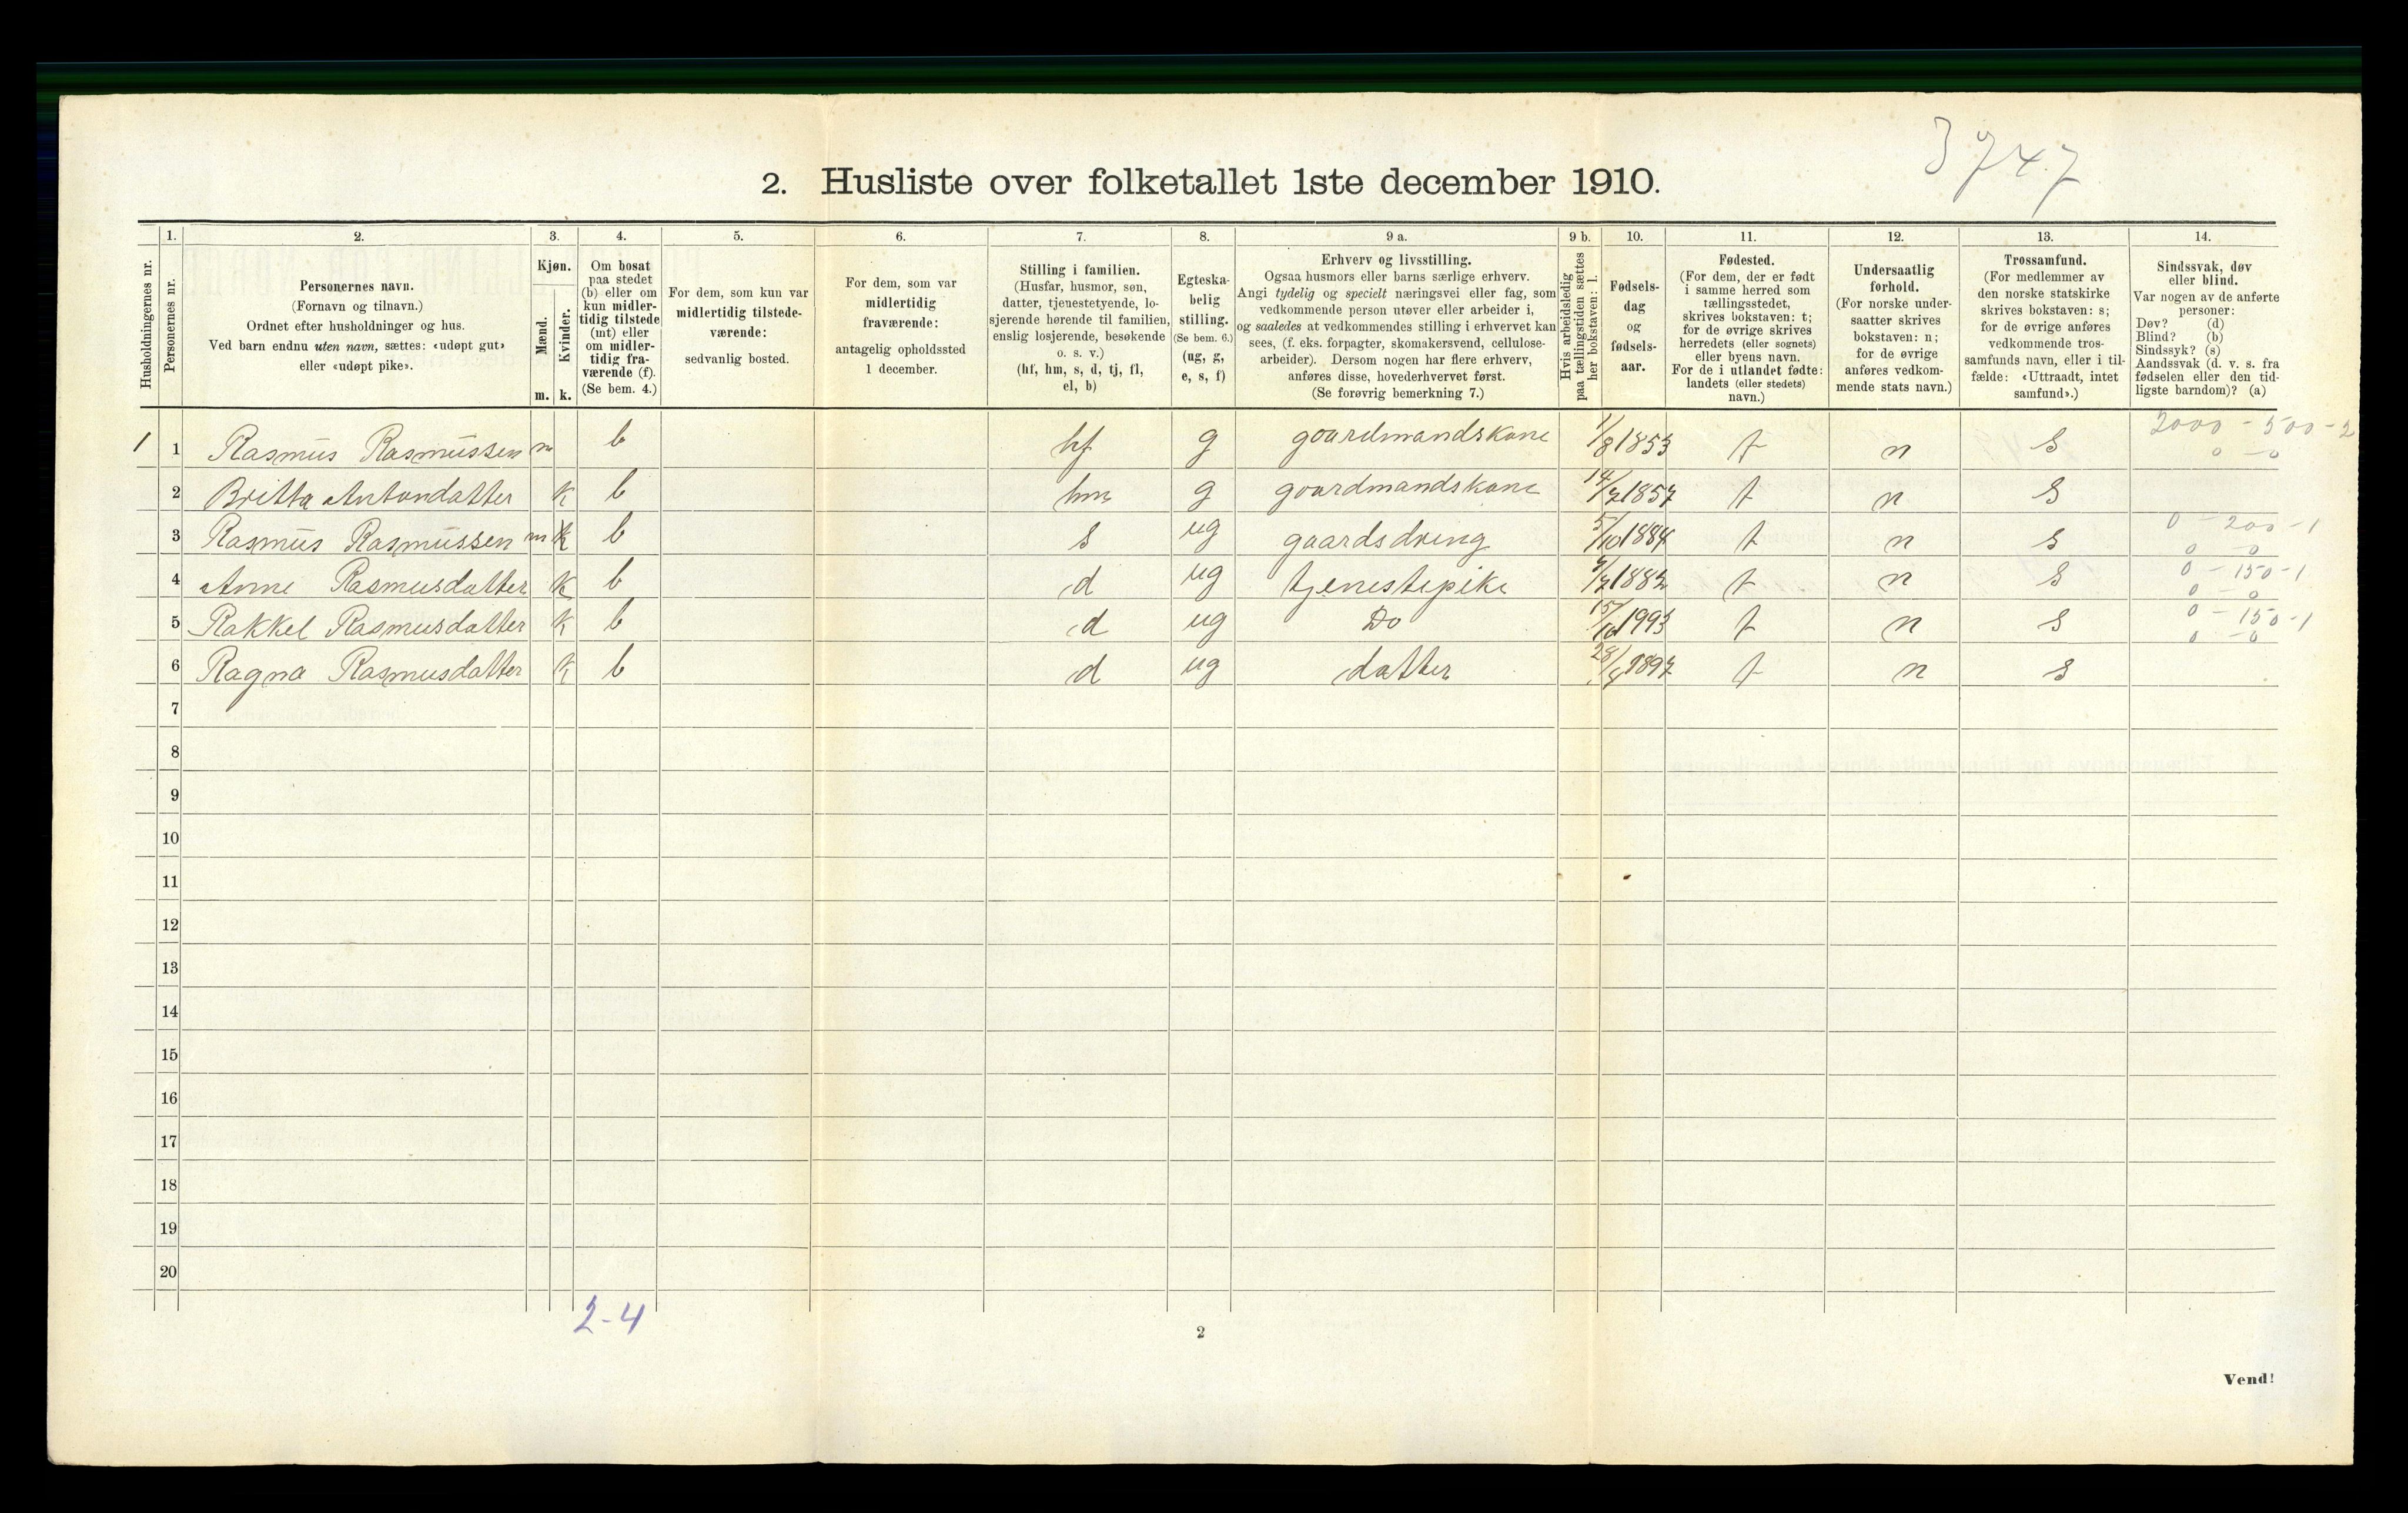 3747
2. Husliste over folketallet 1ste december 1910.
Husholdningernes nr.
1.
Personernes nr.
2.
Personernes navn.
(Fornavn og tilnavn.)
Ordnet efter husholdninger og hus.
Ved barn endnu uten navn, sættes: «udøpt gut»
eller «udøpt pike».
3.
Kjøn.
Mænd.
Kvinder.
m. k.
4.
Om bosat
paa stedet
(b) eller om
kun midler-
tidig tilstede
(mt) eller
om midler-
tidig fra-
værende (f).
(Se bem. 4.)
5.
For dem, som kun var
midlertidig tilstede-
værende:
sedvanlig bosted.
6.
For dem, som var
midlertidig
fraværende:
antagelig opholdssted
1 december.
7.
Stilling i familien.
(Husfar, husmor, søn,
datter, tjenestetyende, lo-
sjerende hørende til familien,
enslig losjerende, besøkende
o. s. v.)
(hf, hm, s, d, tj, fl,
el, b)
8.
Egteska-
belig
stilling.
(Se bem. 6.)
(ug, g,
e, s, f)
9 a.
Erhverv og livsstilling.
Ogsaa husmors eller barns særlige erhverv.
Angi tydelig og specielt næringsvei eller fag, som
vedkommende person utøver eller arbeider i,
og saaledes at vedkommendes stilling i erhvervet kan
sees, (f. eks. forpagter, skomakersvend, cellulose-
arbeider). Dersom nogen har flere erhverv,
anføres disse, hovederhvervet først.
(Se forøvrig bemerkning 7.)
9 b.
Hvis arbeidsledig
paa tællingstiden sættes
her bokstaven: l.
10.
Fødsels-
dag
og
fødsels-
aar.
11.
Fødested.
(For dem, der er født
i samme herred som
tællingsstedet,
skrives bokstaven: t;
for de øvrige skrives
herredets (eller sognets)
eller byens navn.
For de i utlandet fødte:
landets (eller stedets)
navn.)
12.
Undersaatlig
forhold.
(For norske under-
saatter skrives
bokstaven: n;
for de øvrige
anføres vedkom-
mende stats navn.)
13.
Trossamfund.
(For medlemmer av
den norske statskirke
skrives bokstaven: s;
for de øvrige anføres
vedkommende tros-
samfunds navn, eller i til-
fælde: «Uttraadt, intet
samfund».)
14.
Sindssvak, døv
eller blind.
Var nogen av de anførte
personer:
Døv? (d)
Blind? (b)
Sindssyk? (s)
Aandssvak (d. v. s. fra
fødselen eller den tid-
ligste barndom)? (a)
2000 - 500 - 2
1 1 Rasmus Rasmussen m b hf g gaardmandskone 1/8 1853 t n S 0 - 0
2 Britta Antondatter k b hm g gaardmandskone 14/7 1857 t n S
0 - 200 - 1
3 Rasmus Rasmussen m k b s ug gaardsdreng 5/10 1884 t n S 0 - 0
0 - 150 - 1
4 Anne Rasmusdatter k b d ug tjenestepike 1882 t n S 0 - 0
0 - 150 - 1
5 Rakkel Rasmusdatter k b d ug Do 15/10 1993 t n S 0 - 0
6 Ragna Rasmusdatter k b d ug datter 1897 t n S
7
8
9
10
11
12
13
14
15
16
17
18
19
20
2-4
2
Vend!